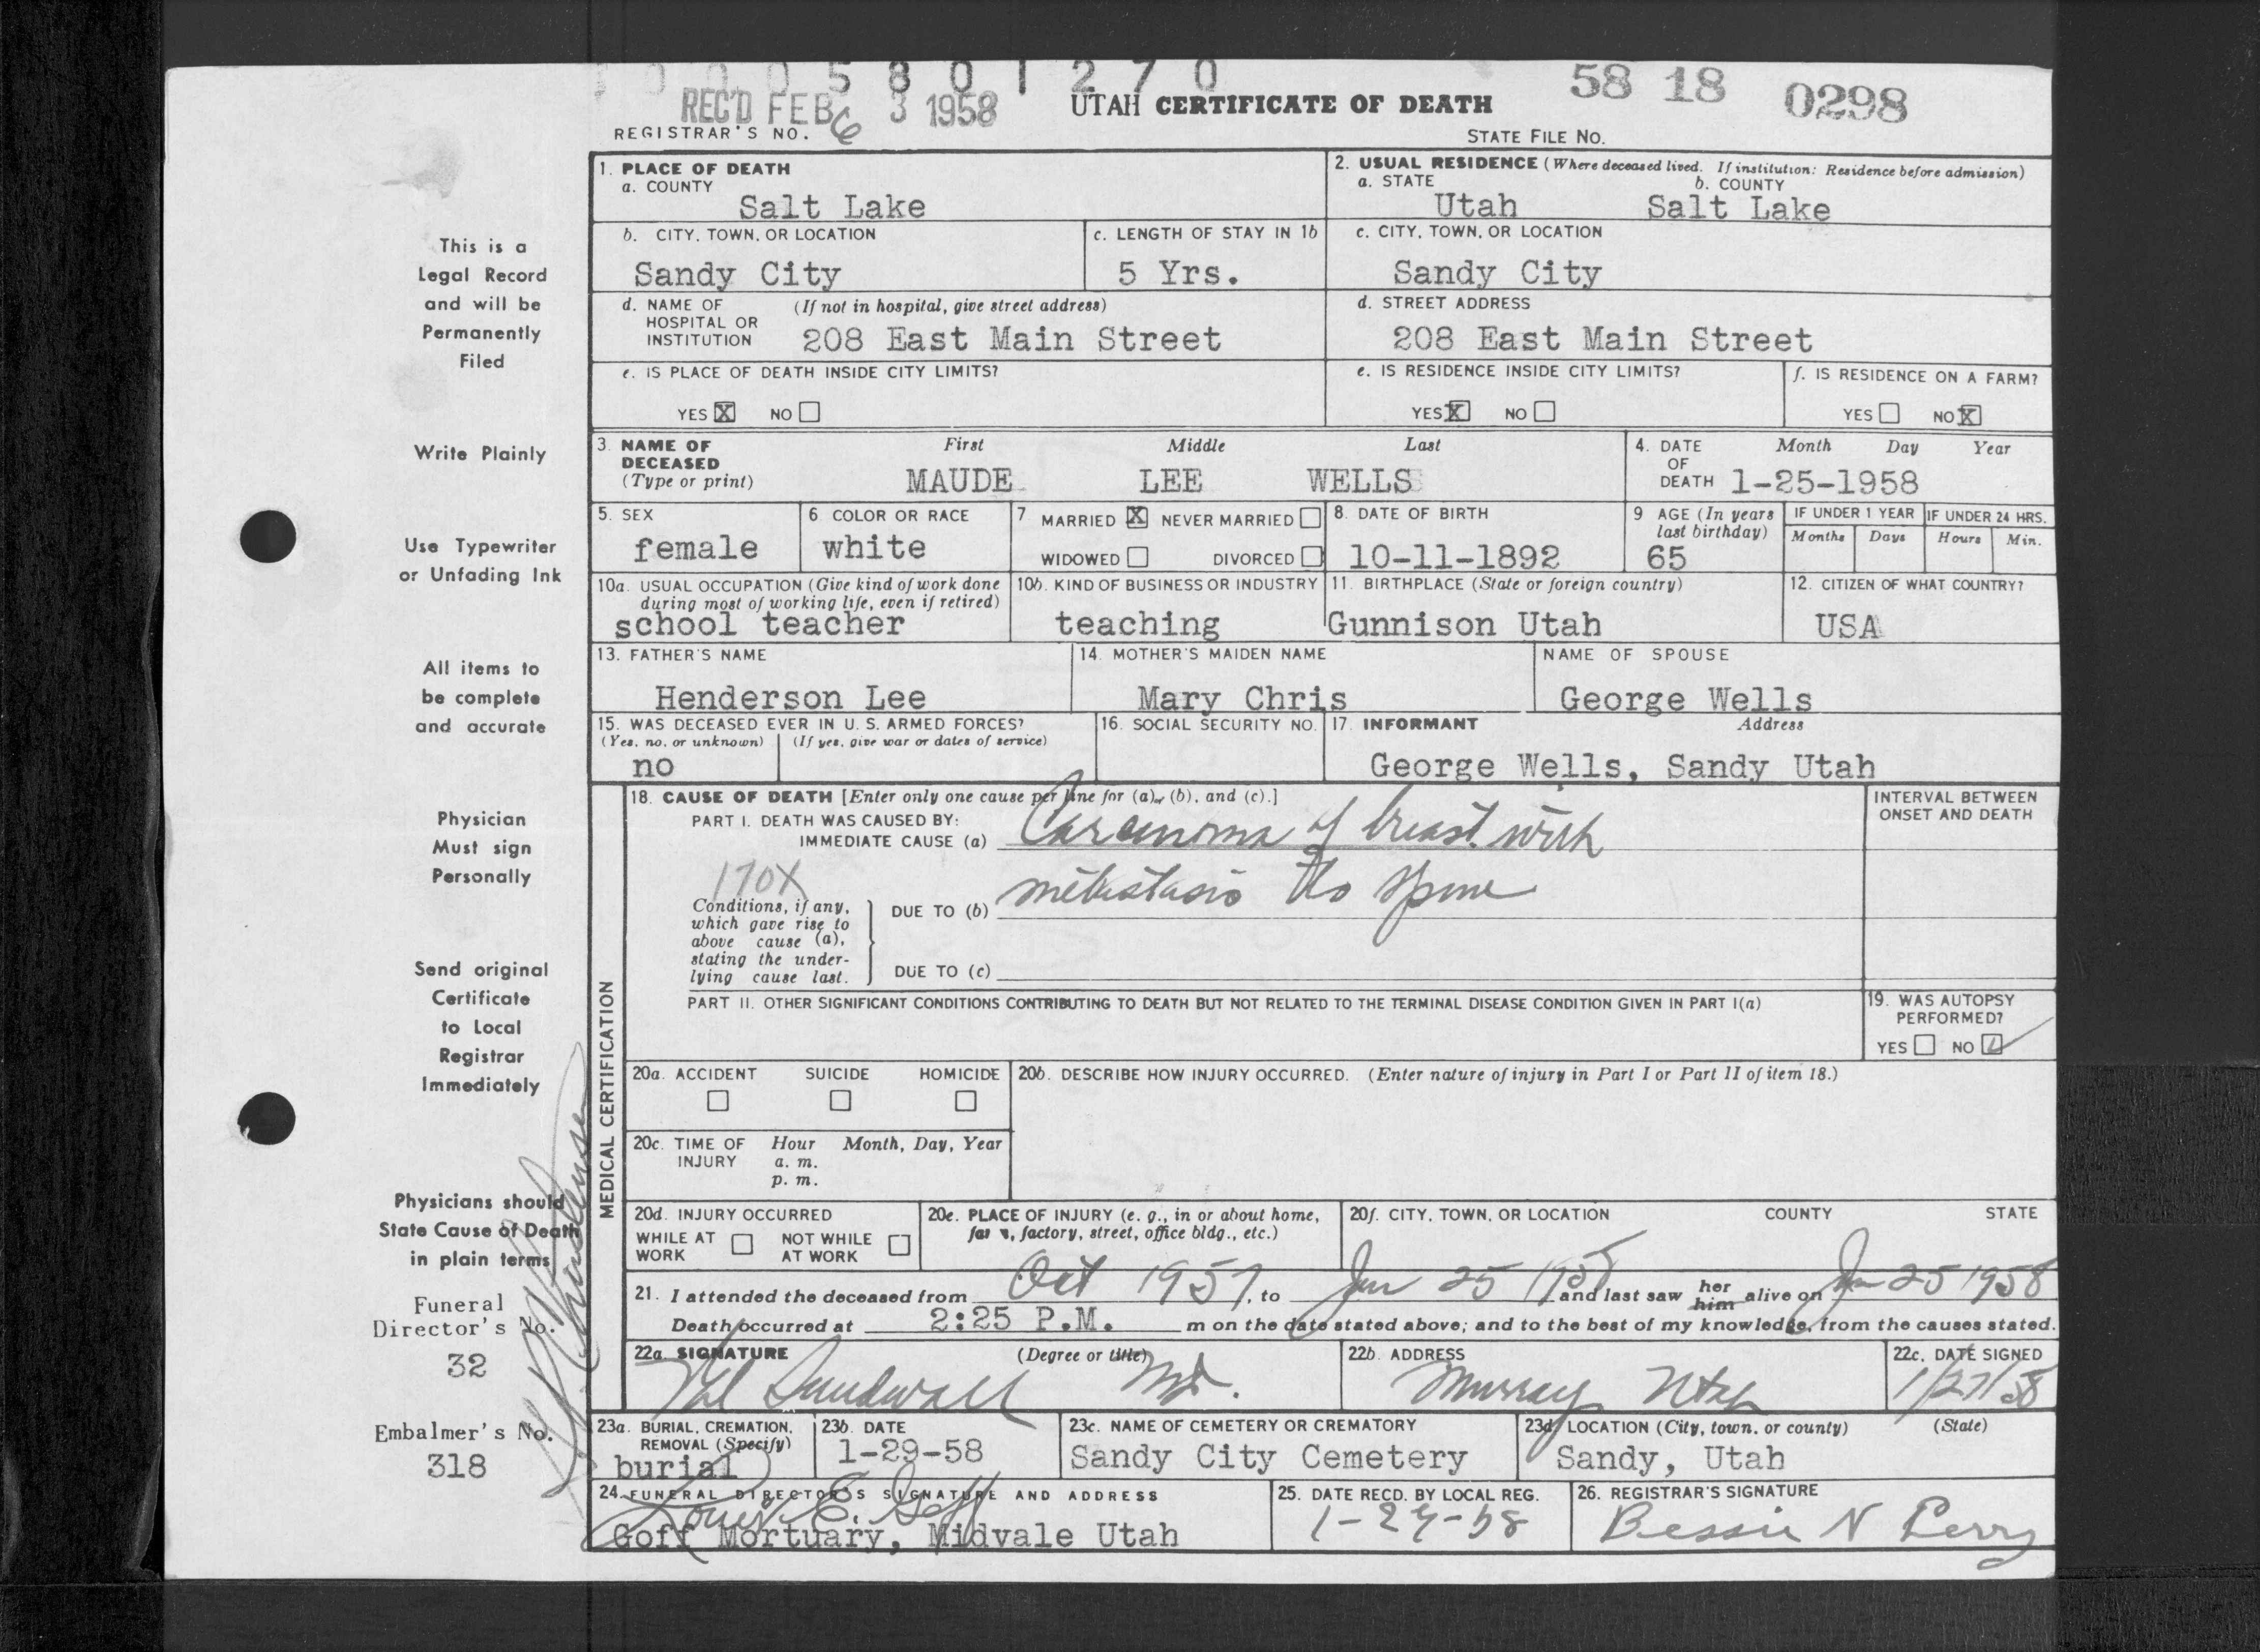 0 0 0 5 8 0 1 2 7 0
REC'D FEB 3 1958
UTAH CERTIFICATE OF DEATH
58 18 0298
REGISTRAR'S NO. 6
STATE FILE NO.
This is a
Legal Record
and will be
Permanently
Filed
Write Plainly
Use Typewriter
or Unfading Ink
All items to
be complete
and accurate
Physician
Must sign
Personally
Send original
Certificate
to Local
Registrar
Immediately
Physicians should
State Cause of Death
in plain terms
Funeral
Director's No.
32
Embalmer's No.
318
1. PLACE OF DEATH
a. COUNTY
Salt Lake
2. USUAL RESIDENCE (Where deceased lived. If institution: Residence before admission)
a. STATE b. COUNTY
Utah Salt Lake
b. CITY, TOWN, OR LOCATION
Sandy City
c. LENGTH OF STAY IN 1b
5 Yrs.
c. CITY, TOWN, OR LOCATION
Sandy City
d. NAME OF (If not in hospital, give street address)
HOSPITAL OR
INSTITUTION 208 East Main Street
d. STREET ADDRESS
208 East Main Street
e. IS PLACE OF DEATH INSIDE CITY LIMITS?
YES X NO
e. IS RESIDENCE INSIDE CITY LIMITS?
YES X NO
f. IS RESIDENCE ON A FARM?
YES NO X
3. NAME OF First Middle Last
DECEASED
(Type or print) MAUDE LEE WELLS
4. DATE Month Day Year
OF
DEATH 1-25-1958
5. SEX
female
6. COLOR OR RACE
white
7 MARRIED X NEVER MARRIED
WIDOWED DIVORCED
8. DATE OF BIRTH
10-11-1892
9 AGE (In years
last birthday)
65
IF UNDER 1 YEAR
Months Days
IF UNDER 24 HRS.
Hours Min.
10a. USUAL OCCUPATION (Give kind of work done
during most of working life, even if retired)
school teacher
10b. KIND OF BUSINESS OR INDUSTRY
teaching
11. BIRTHPLACE (State or foreign country)
Gunnison Utah
12. CITIZEN OF WHAT COUNTRY?
USA
13. FATHER'S NAME
Henderson Lee
14. MOTHER'S MAIDEN NAME
Mary Chris
NAME OF SPOUSE
George Wells
15. WAS DECEASED EVER IN U. S. ARMED FORCES?
(Yes, no, or unknown) (If yes, give war or dates of service)
no
16. SOCIAL SECURITY NO.
17. INFORMANT Address
George Wells, Sandy Utah
MEDICAL CERTIFICATION
18. CAUSE OF DEATH [Enter only one cause per line for (a), (b), and (c).]
PART I. DEATH WAS CAUSED BY:
IMMEDIATE CAUSE (a) Carcinoma of breast with
170X
DUE TO (b) metastasis to spine
Conditions, if any,
which gave rise to
above cause (a),
stating the under-
lying cause last.
DUE TO (c)
INTERVAL BETWEEN
ONSET AND DEATH
PART II. OTHER SIGNIFICANT CONDITIONS CONTRIBUTING TO DEATH BUT NOT RELATED TO THE TERMINAL DISEASE CONDITION GIVEN IN PART I(a)
19. WAS AUTOPSY
PERFORMED?
YES NO
20a. ACCIDENT SUICIDE HOMICIDE
20b. DESCRIBE HOW INJURY OCCURRED. (Enter nature of injury in Part I or Part II of item 18.)
20c. TIME OF Hour Month, Day, Year
INJURY a. m.
p. m.
20d. INJURY OCCURRED
WHILE AT NOT WHILE
WORK AT WORK
20e. PLACE OF INJURY (e. g., in or about home,
factory, street, office bldg., etc.)
20f. CITY, TOWN, OR LOCATION COUNTY STATE
21. I attended the deceased from Oct 1957, to Jan 25 1958 and last saw her him alive on Jan 25 1958
Death occurred at 2:25 P.M. m on the date stated above; and to the best of my knowledge, from the causes stated.
22a. SIGNATURE (Degree or title)
Val Sundwall MD.
22b. ADDRESS
Murray Utah
22c. DATE SIGNED
1/27/58
23a. BURIAL, CREMATION,
REMOVAL (Specify)
burial
23b. DATE
1-29-58
23c. NAME OF CEMETERY OR CREMATORY
Sandy City Cemetery
23d. LOCATION (City, town, or county) (State)
Sandy, Utah
24. FUNERAL DIRECTOR'S SIGNATURE AND ADDRESS
Louis E. Goff
Goff Mortuary, Midvale Utah
25. DATE RECD. BY LOCAL REG.
1-29-58
26. REGISTRAR'S SIGNATURE
Bessie N Perry